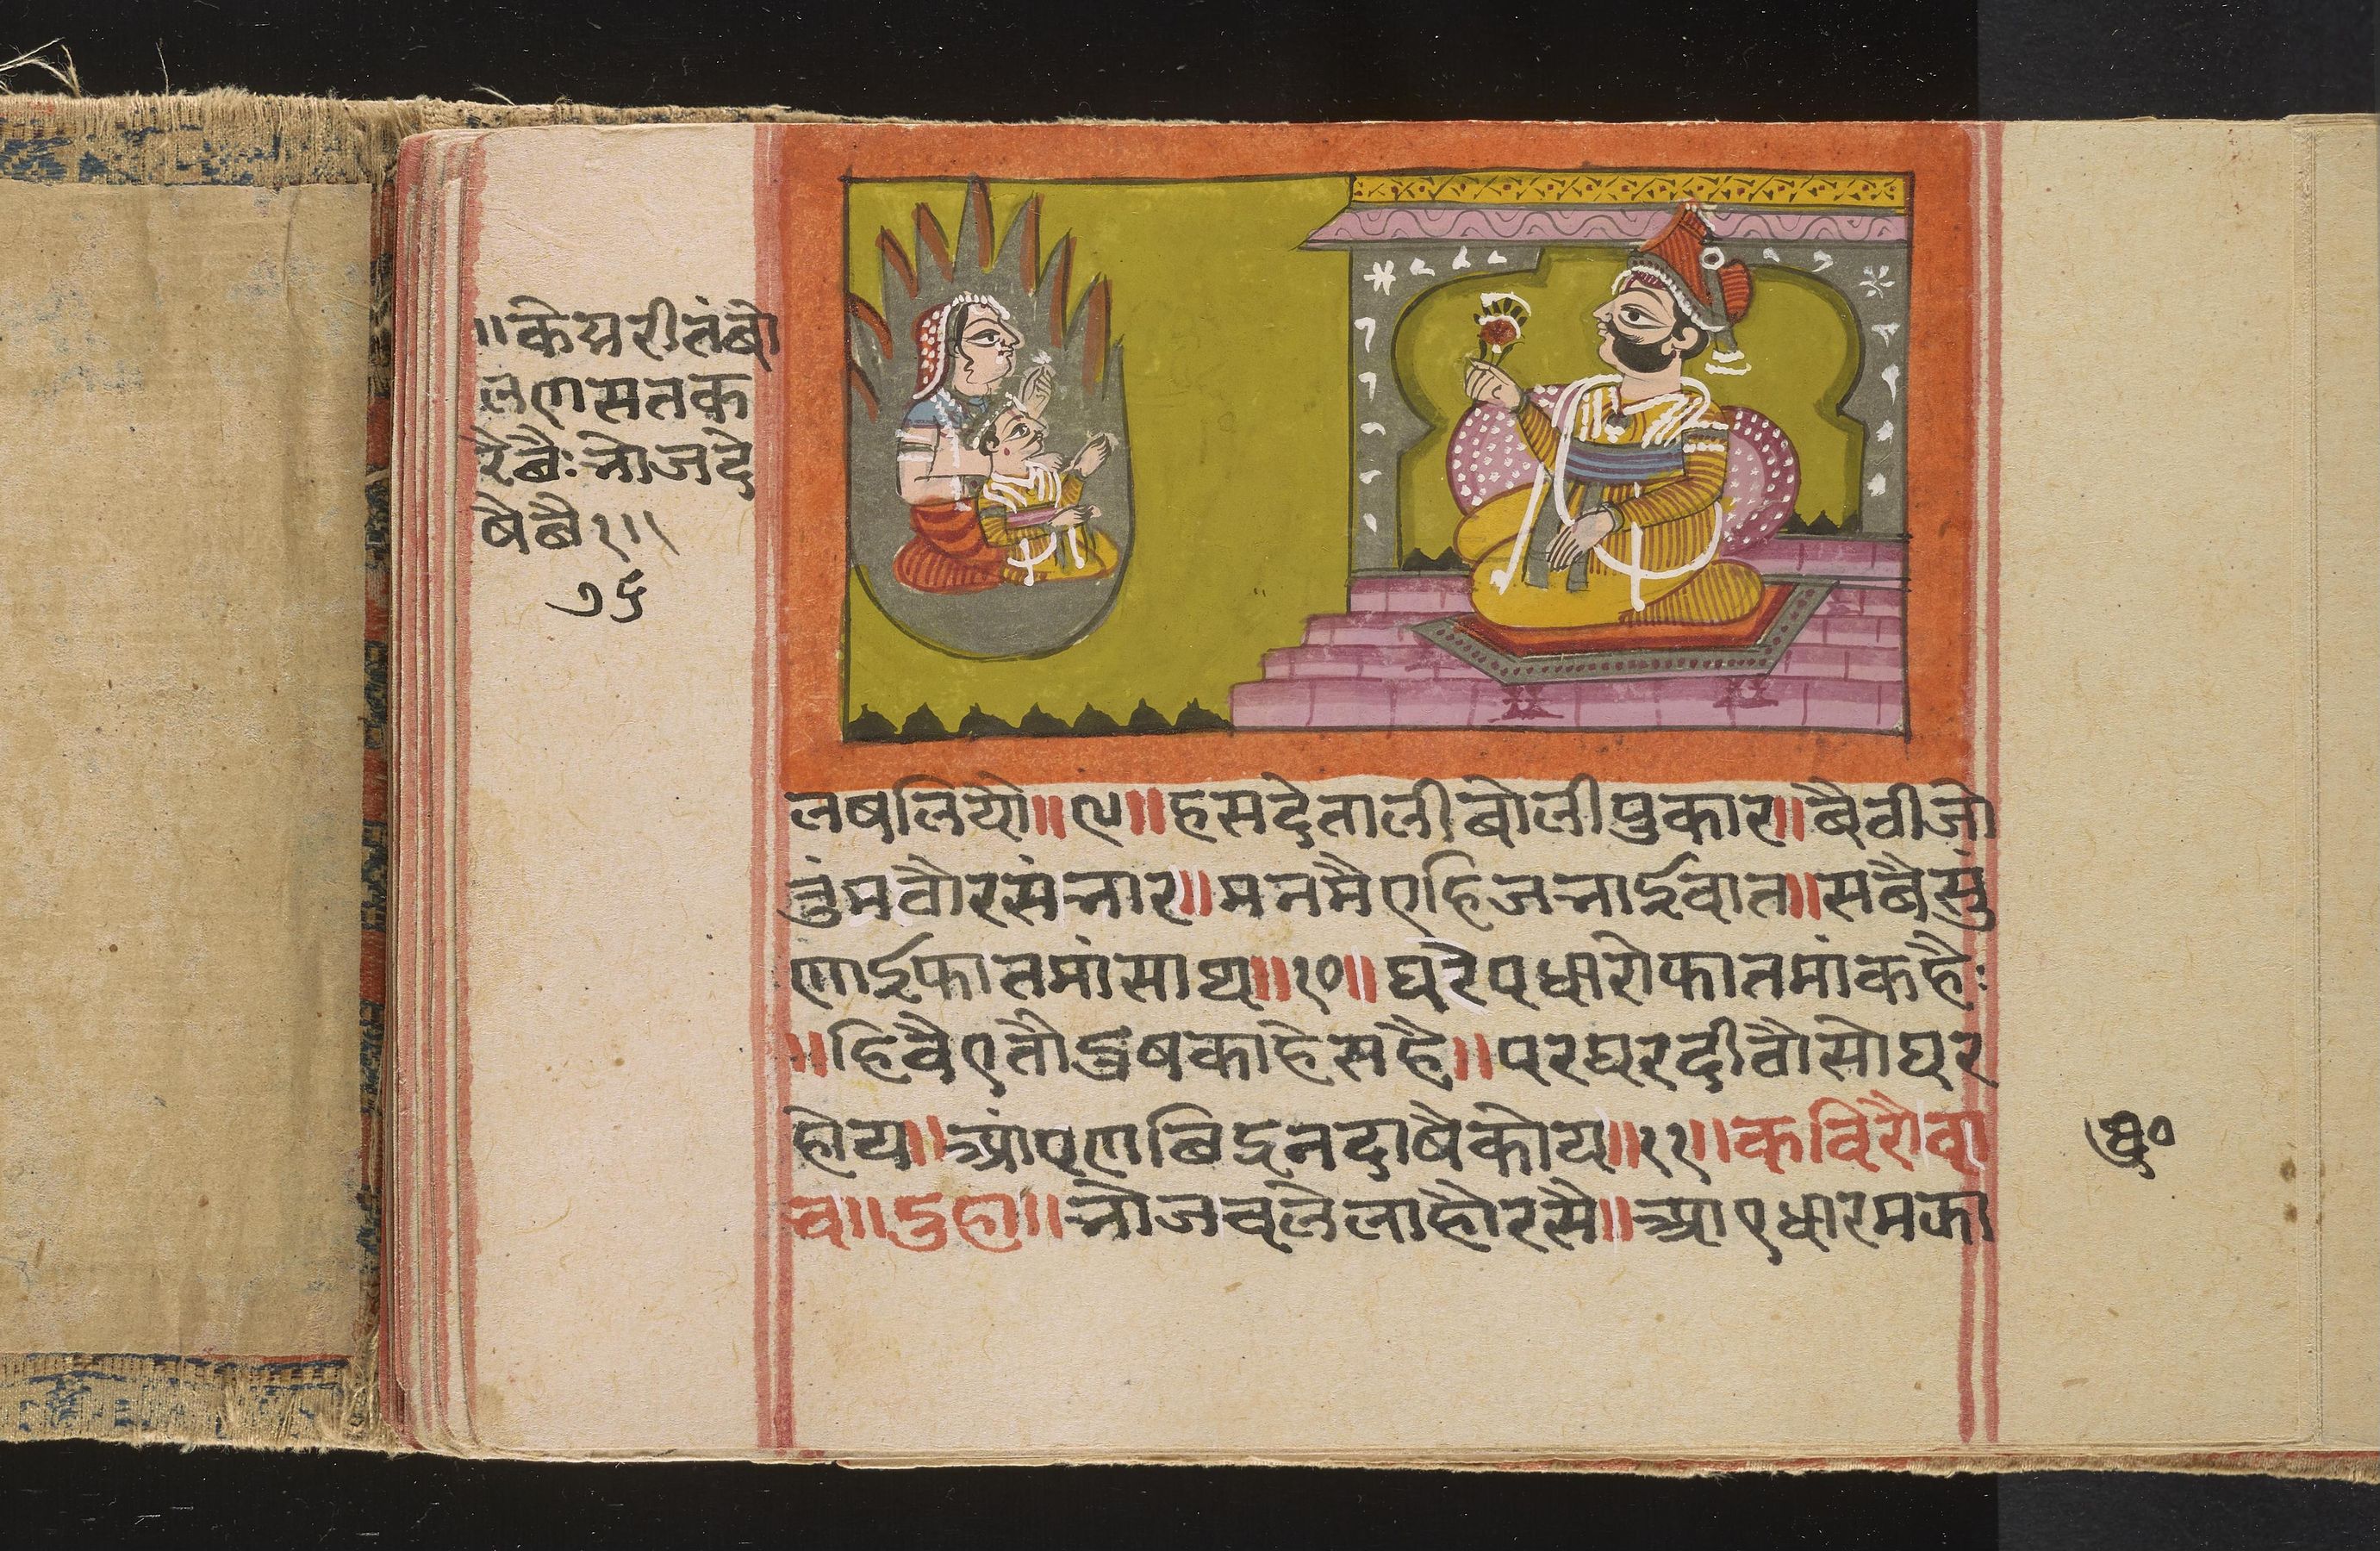 ॥केसरीतंबो
लणसतक
रैबैः भोजदे
षैबै१॥
७६
लषलियो॥९॥हसदेतालीबोलीपुकार॥बैवीजो
तुंमवौरसंभार॥मनमैएहिजभाईवात॥सबैसुं
णाईफातमांसाथ॥१०॥घरेपधारोफातमांकहैः
॥हिवैएतौदुषकाहेसहै॥परघरदीवौसोघर
होय॥आंपणबिइनदाषैकोय॥११॥कविरोवा
च॥दुहा॥भोजचलेलाहौरसै॥आएधारमका